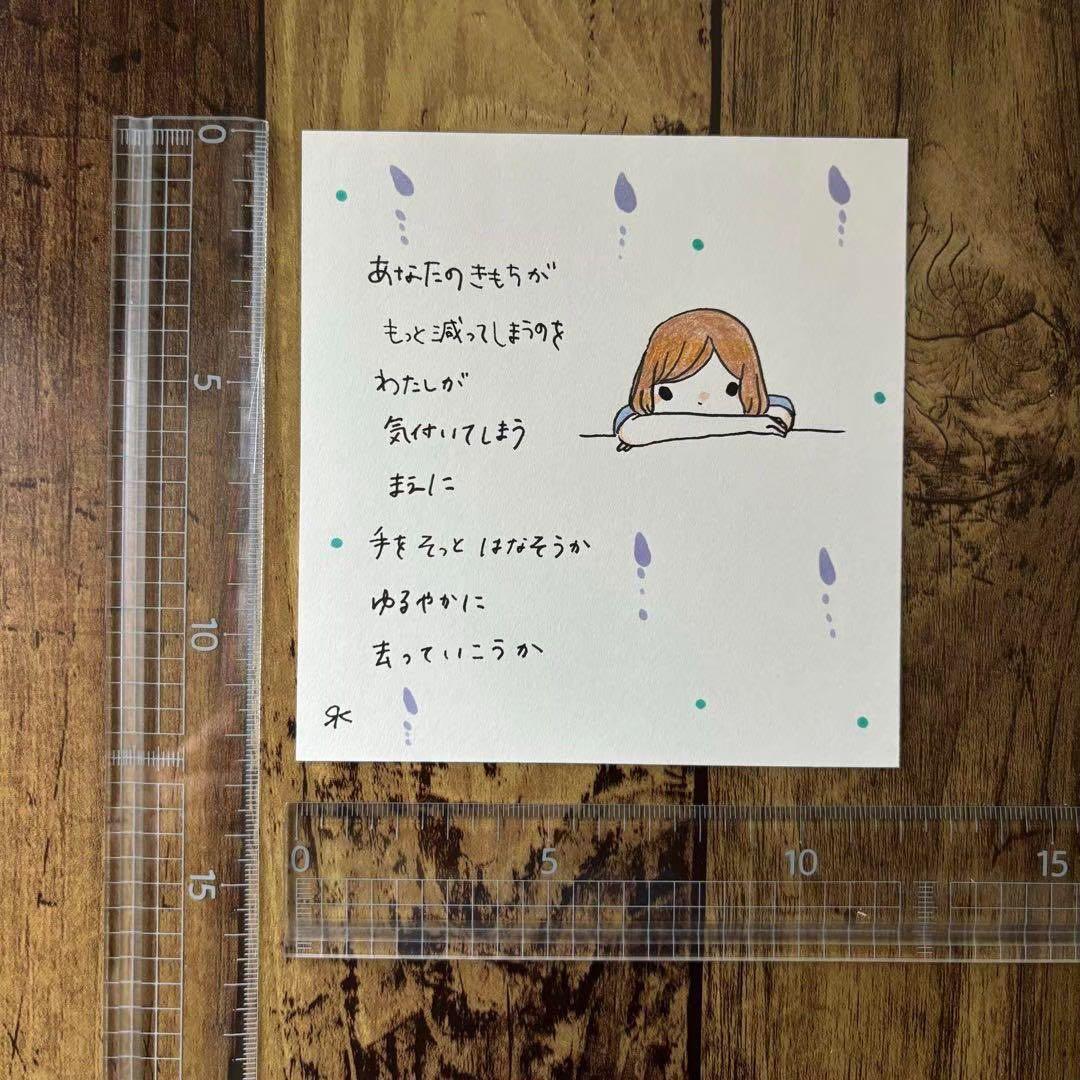 あなたのきもちが
もっと減ってしまうのを
わたしが
気付いてしまう
まえに
手をそっと はなそうか
ゆるやかに
去っていこうか
0
5
10
15
0 5 10 15